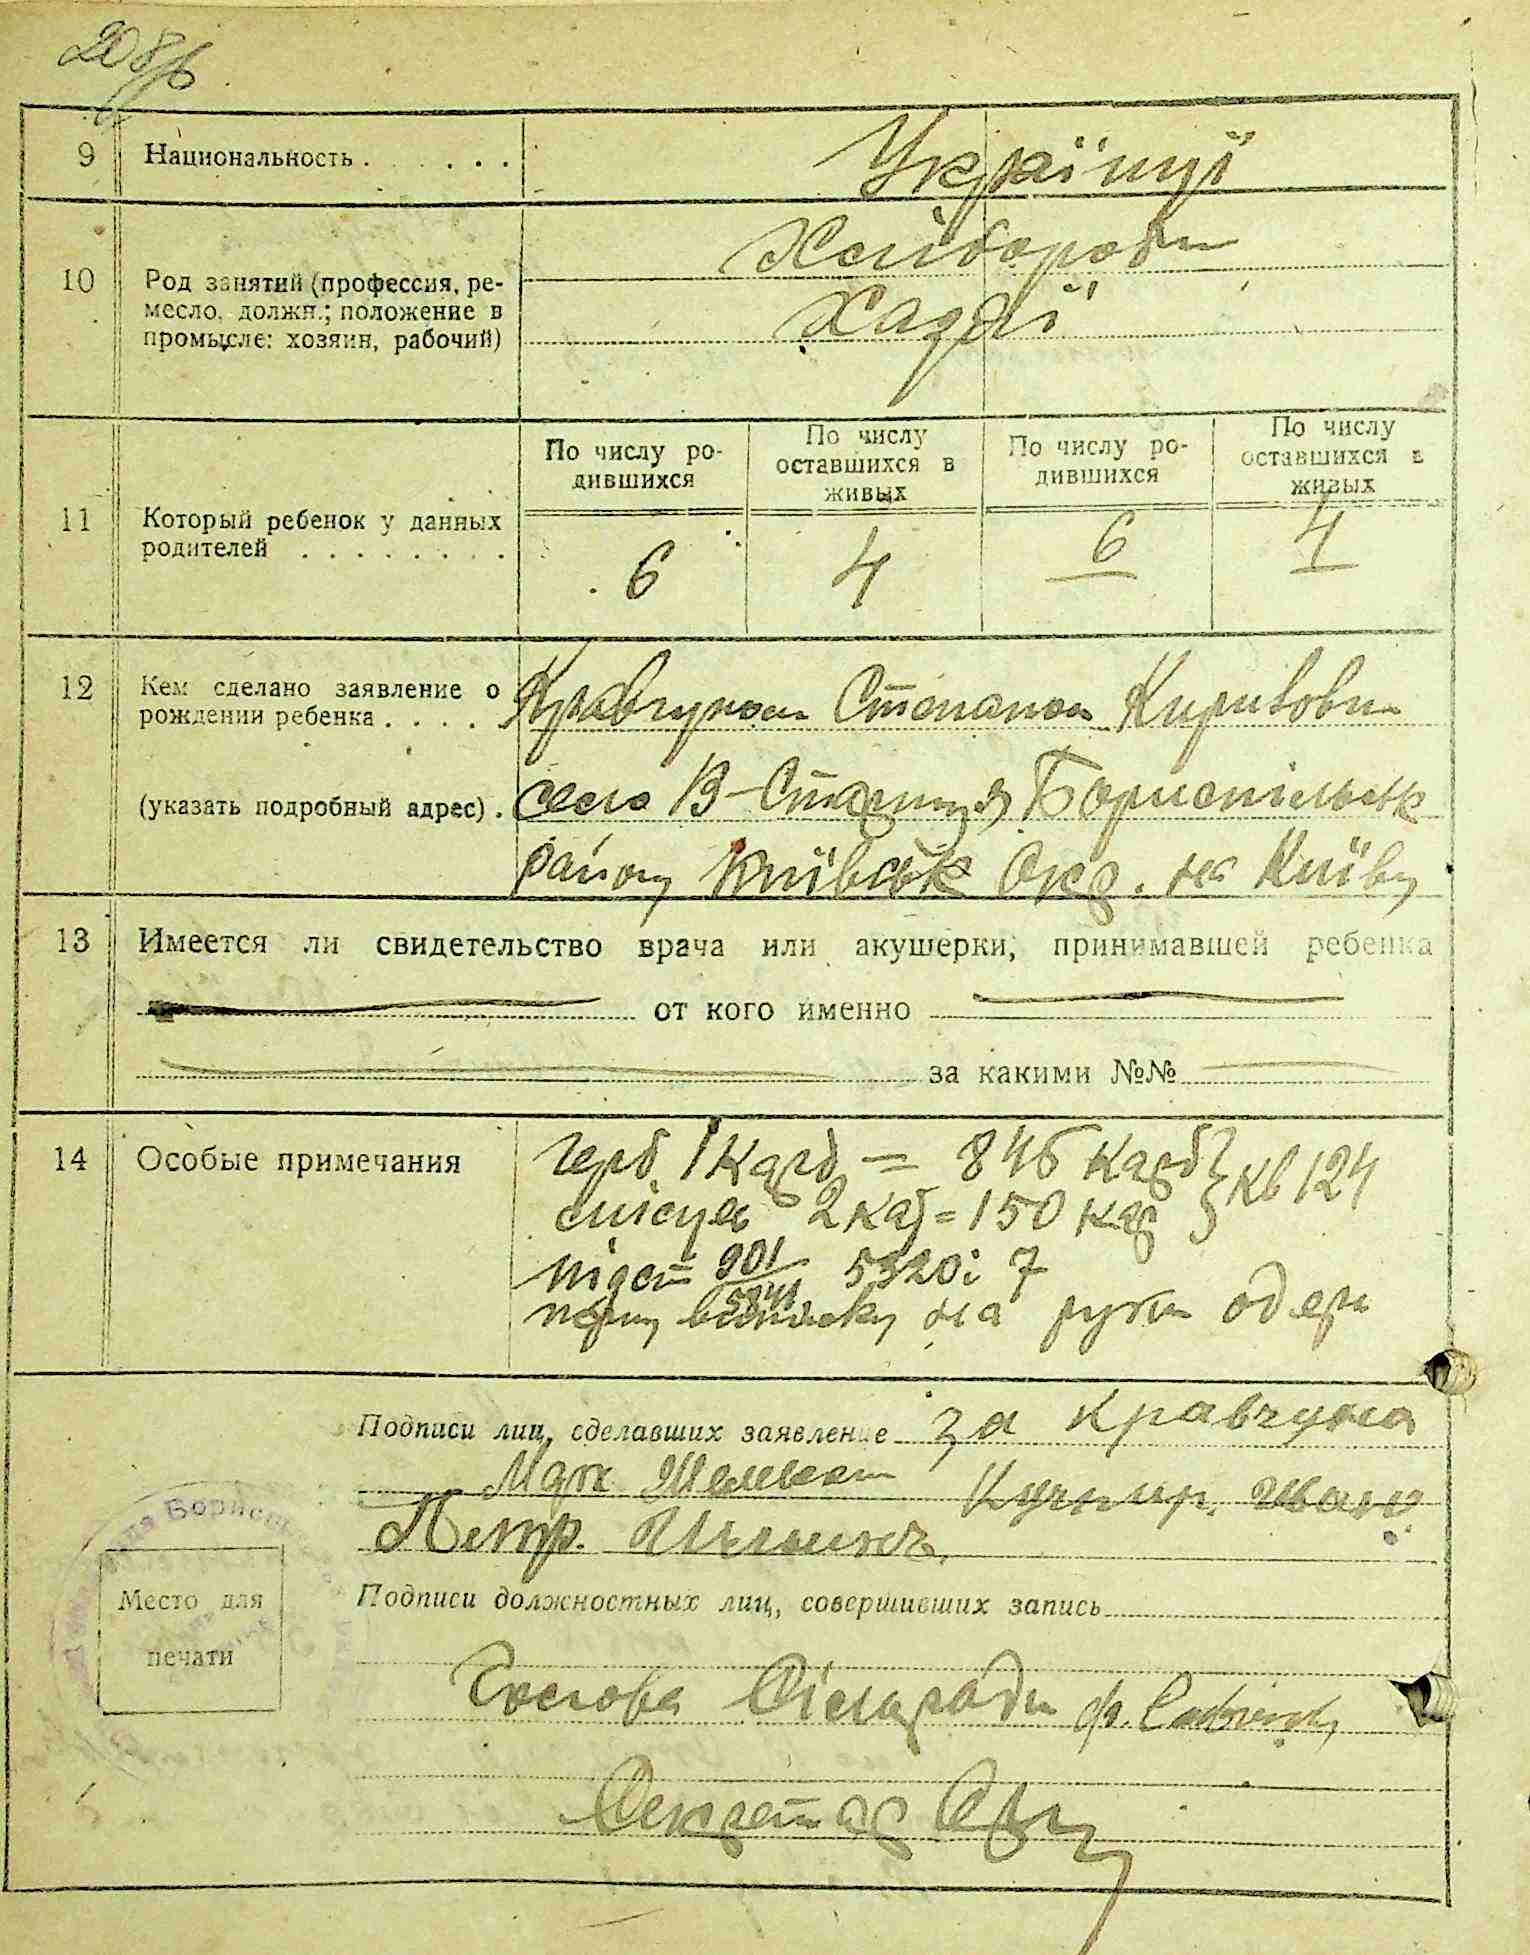 9 Национальность . . . . . . Українці
10 Род занятий (профессия, ре-
месло, должн.; положение в
промысле: хозяин, рабочий)
Хлібороби
Хазяї
11 Который ребенок у данных
родителей . . . . . . . .
По числу ро-
дившихся
По числу
оставшихся в
живых
По числу ро-
дившихся
По числу
оставшихся в
живых
6 4 6 4
12 Кем сделано заявление о
рождении ребенка . . . .
Кравчуком Степаном Кирилови
(указать подробный адрес) . село В-Стариця Бориспільськ
району Київськ Окр. на Київщ
13 Имеется ли свидетельство врача или акушерки, принимавшей ребенка
от кого именно
за какими №№
14 Особые примечания
герб 1 карб = 846 карб } кв 124
місцев 2 кар = 150 кар
підст 901/5841 5320 і 7
перш виписку на руки одерж
Подписи лиц, сделавших заявление За Кравчука
Кучмир. Иван
Петр.
Подписи должностных лиц, совершивших запись
Место для
печати
Голова Сільради
Секретар